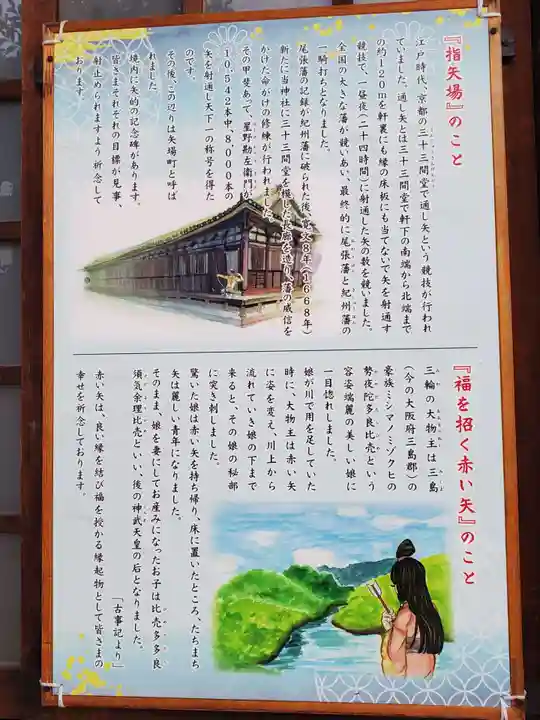 『指矢場』のこと
江戸時代、京都の三十三間堂で通し矢という競技が行われ
ていました。通し矢とは三十三間堂で軒下の南端から北端まで
の約120mを軒裏にも縁の床板にも当てないで矢を射通す
競技で、一昼夜(二十四時間)に射通した矢の数を競いました。
全国の大きな藩が競いあい、最終的に尾張藩と紀州藩の
一騎打ちとなりました。
尾張藩の記録が紀州藩に破られた後、寛文8年(1668年)
新たに当神社に三十三間堂を模した矢場を造り、藩の威信を
かけた命がけの修練が行われました。
その甲斐あって、星野勘左衛門が
10,542本中、8000本の
矢を射通し天下一の称号を得た
のです。
その後、この辺りは矢場町と呼ば
れました。
境内に矢的の記念碑があります。
皆さまそれぞれの目標が見事、
射止められますよう祈念して
おります。
『福を招く赤い矢』のこと
三輪の大物主は三島
(今の大阪府三島郡)の
豪族ミシマノミゾクヒの
勢夜陀多良比売という
容姿端麗の美しい娘に
一目惚れしました。
娘が川で用を足していた
時に、大物主は赤い矢
に姿を変え、川上から
流れていき娘の下まで
来ると、その娘の秘部
に突き刺しました。
驚いた娘は赤い矢を持ち帰り、床に置いたところ、たちまち
矢は麗しい青年になりました。
そのまま、娘を妻にしてお産みになったお子は比売多多良
須気余理比売といい、後の神武天皇の后となりました。
「古事記より」
赤い矢は、良い縁を結び福を授かる縁起物として皆さまの
幸せを祈念しております。